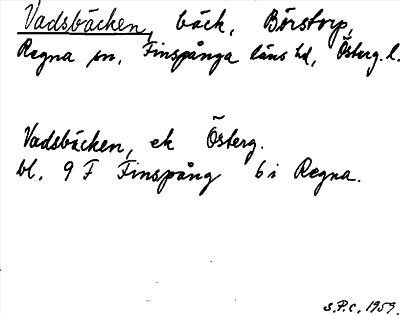 Vadsbäcken, bäck, Börstorp,
Regna sn, Finspånga läns hd, Österg. l.
Vadsbäcken, ek Österg.
bl. 9 F Finspång 6 i Regna.
S.P.C. 1959.